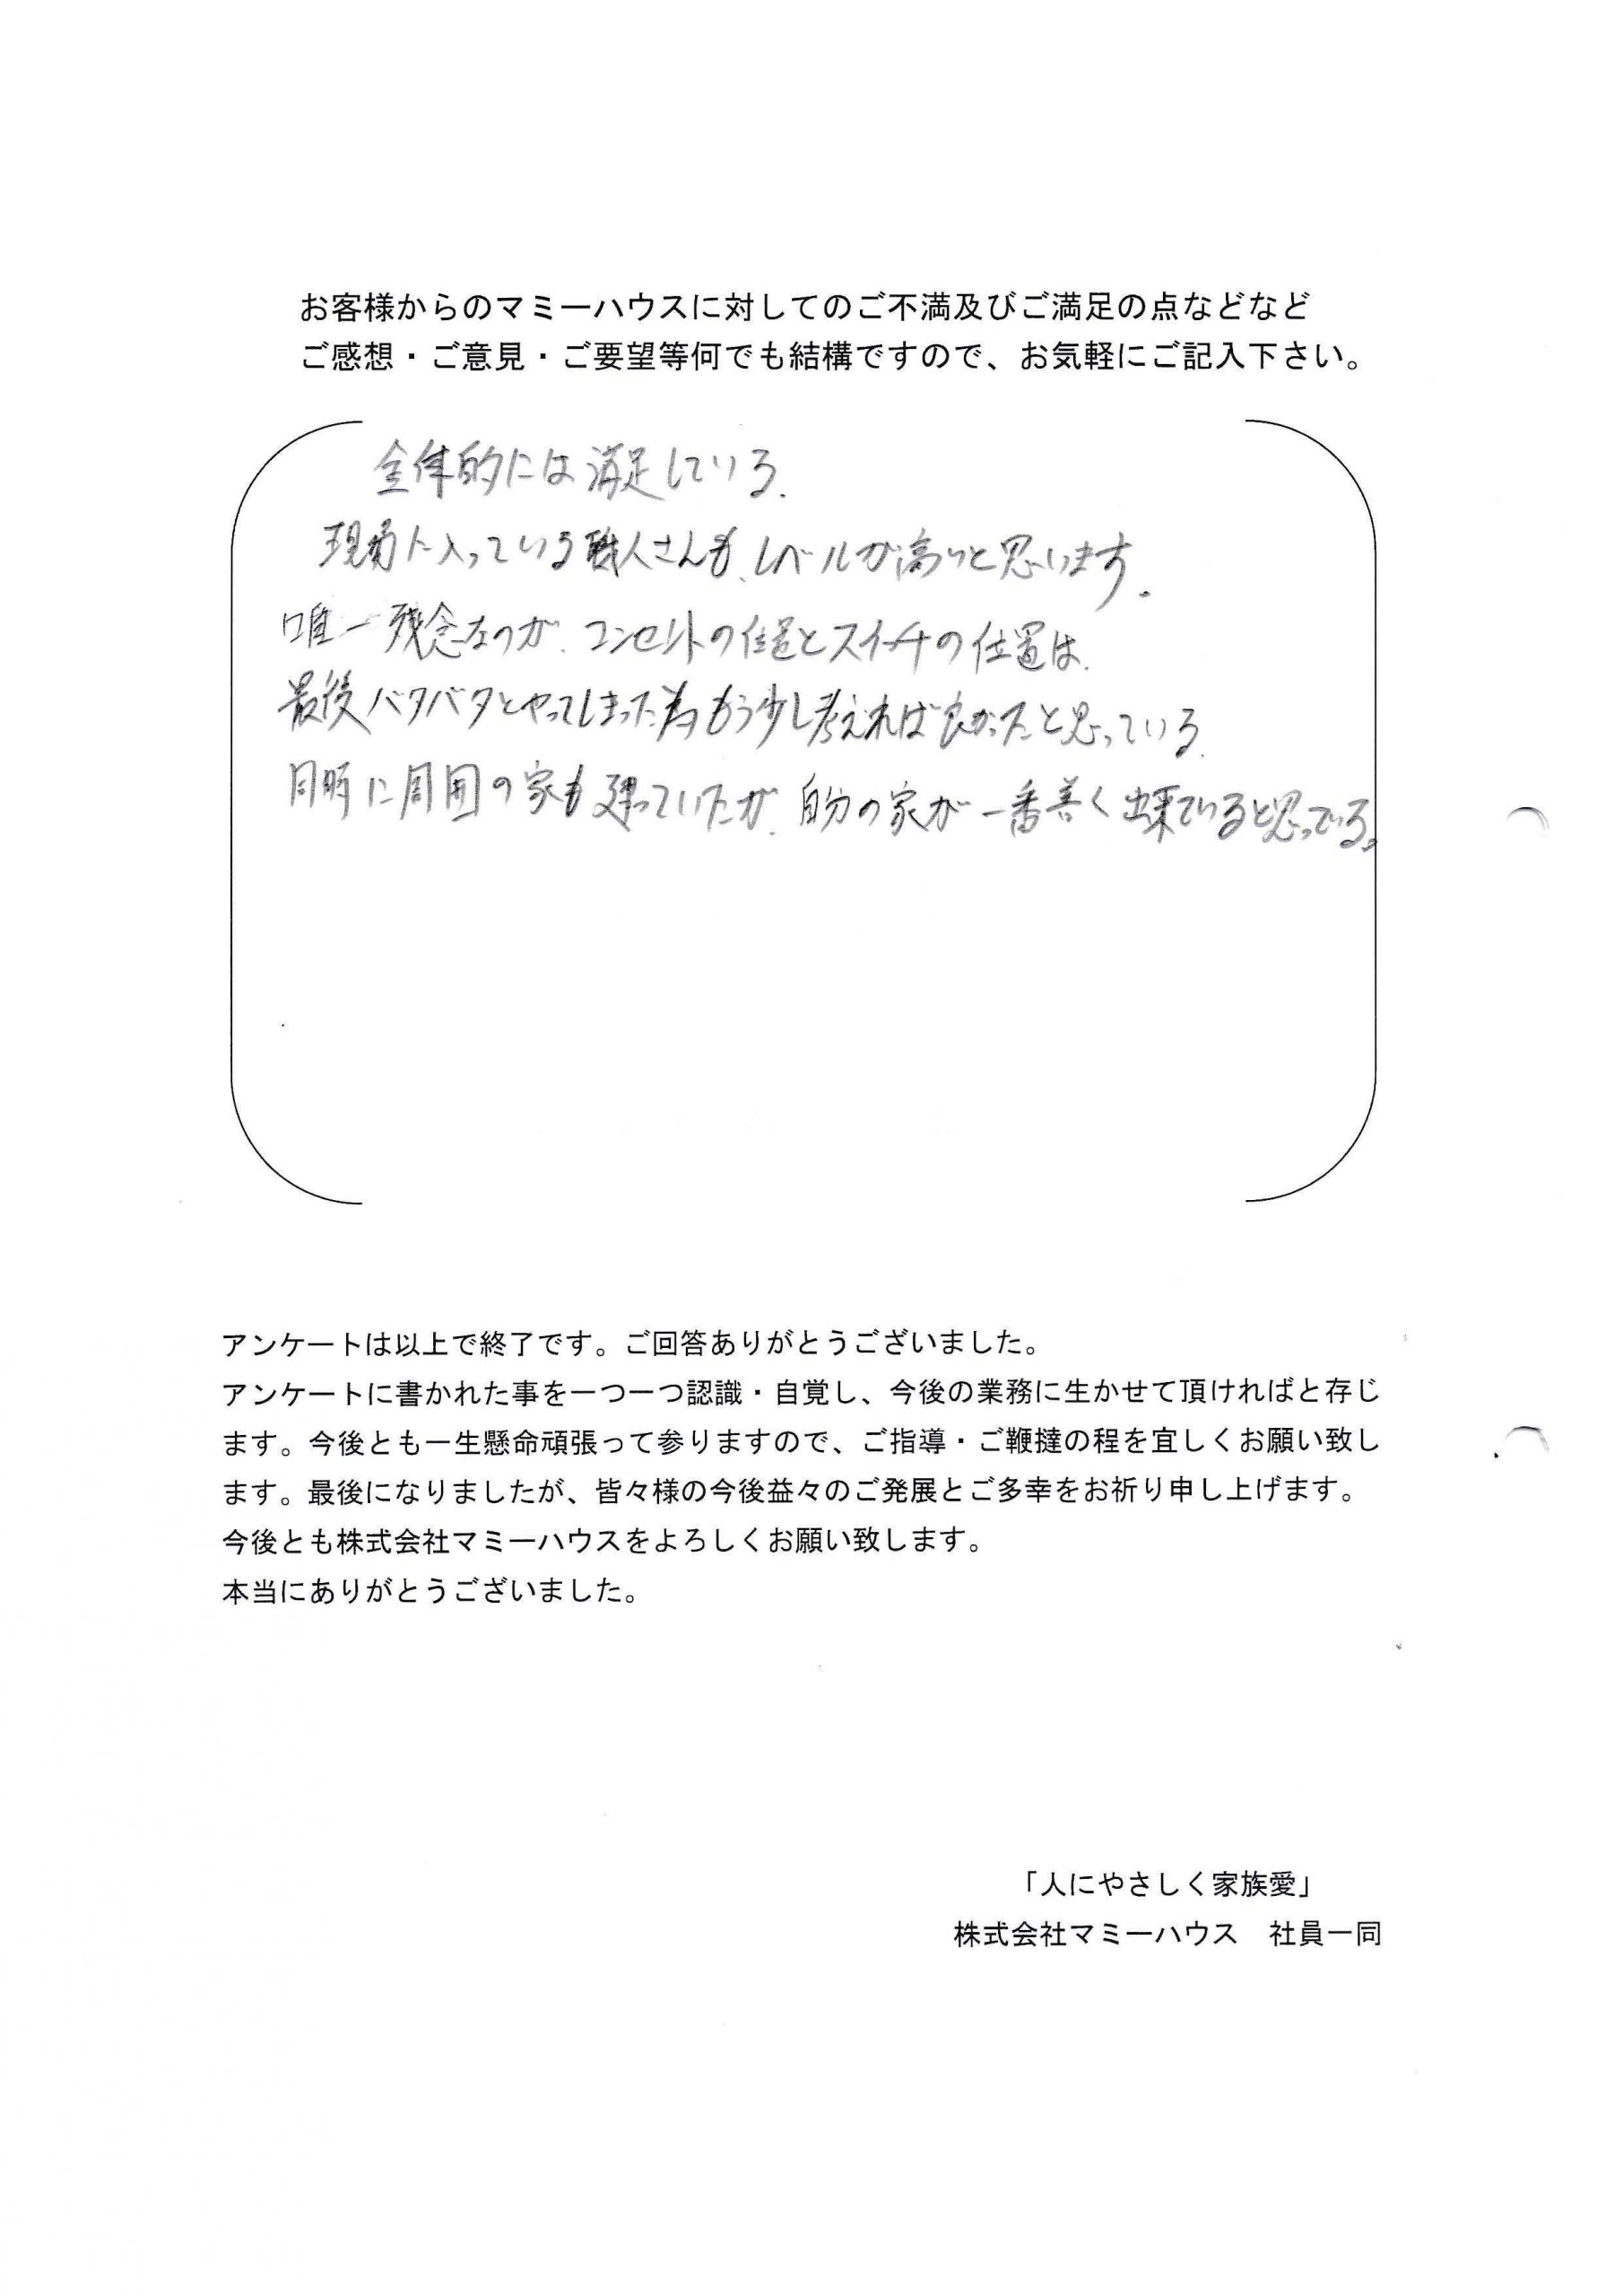 お客様からのマミーハウスに対してのご不満及びご満足の点などなど
ご感想・ご意見・ご要望等何でも結構ですので、お気軽にご記入下さい。
全体的には満足している.
現場に入っている職人さんも、レベルが高いと思います.
唯一残念なのが、コンセントの位置とスイッチの位置は、
最後バタバタとやってしまった為もう少し考えれば良かったと思っている.
同時に周囲の家も建っていたが、自分の家が一番善く出来ていると思っている。
アンケートは以上で終了です。ご回答ありがとうございました。
アンケートに書かれた事を一つ一つ認識・自覚し、今後の業務に生かせて頂ければと存じ
ます。今後とも一生懸命頑張って参りますので、ご指導・ご鞭撻の程を宜しくお願い致し
ます。最後になりましたが、皆々様の今後益々のご発展とご多幸をお祈り申し上げます。
今後とも株式会社マミーハウスをよろしくお願い致します。
本当にありがとうございました。
「人にやさしく家族愛」
株式会社マミーハウス　社員一同